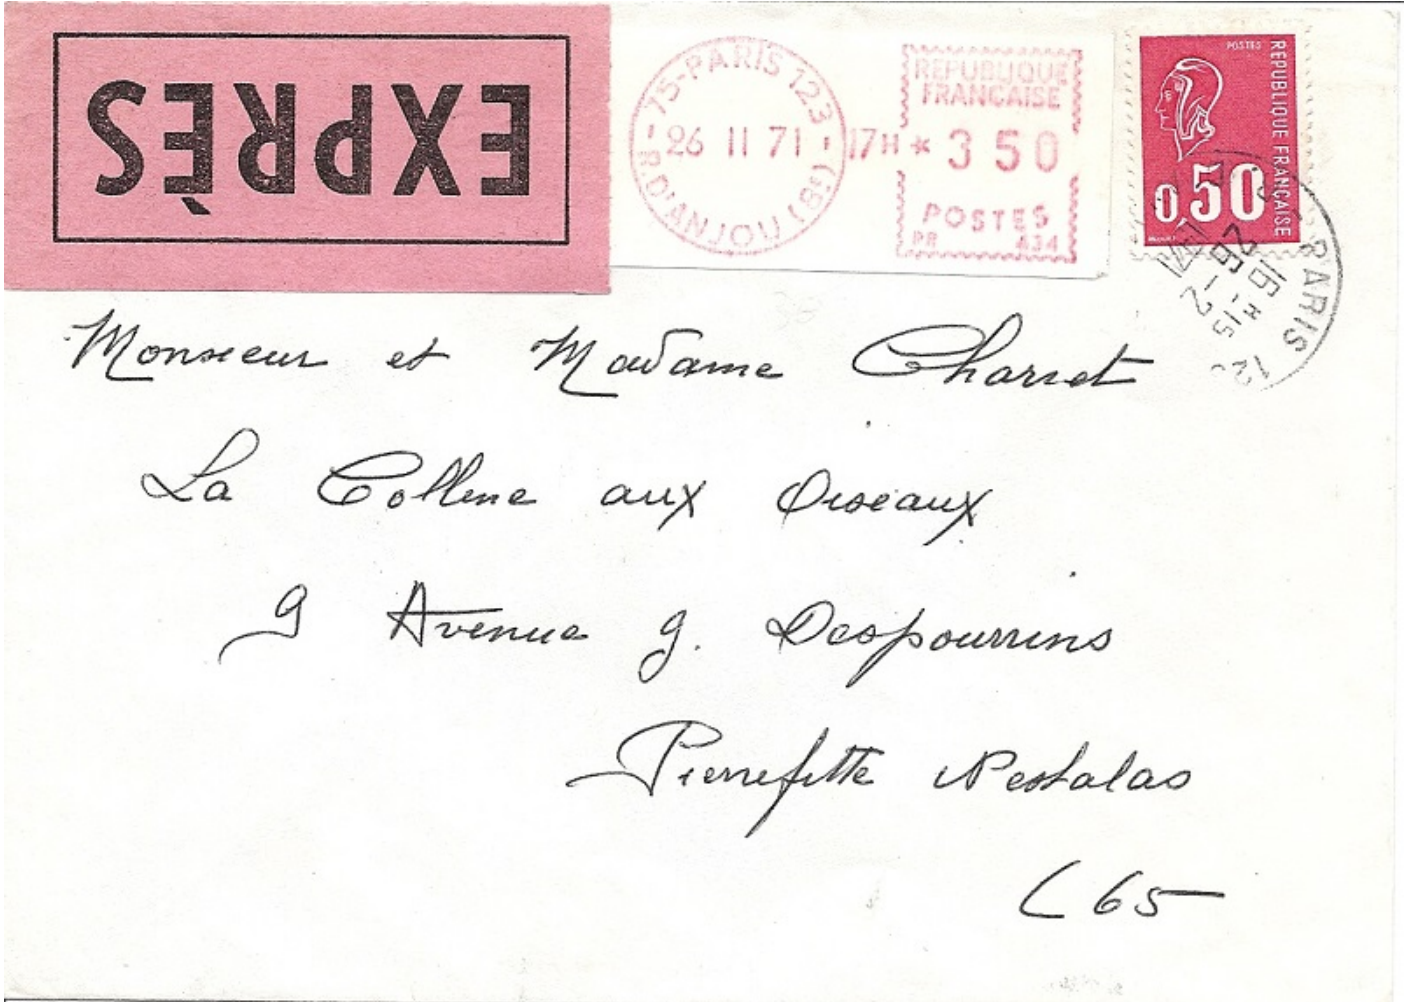 EXPRÈS
75-PARIS 123
26 II 71
R. D'ANJOU (8e)
17H *
REPUBLIQUE
FRANCAISE
350
POSTES
PR A34
POSTES
REPUBLIQUE FRANÇAISE
0,50
PARIS 12
16 H 15
26-2
Monsieur et Madame
La Colline aux Oiseaux
9 Avenue g. Despourrins
Pierrefitte Nestalas
(65